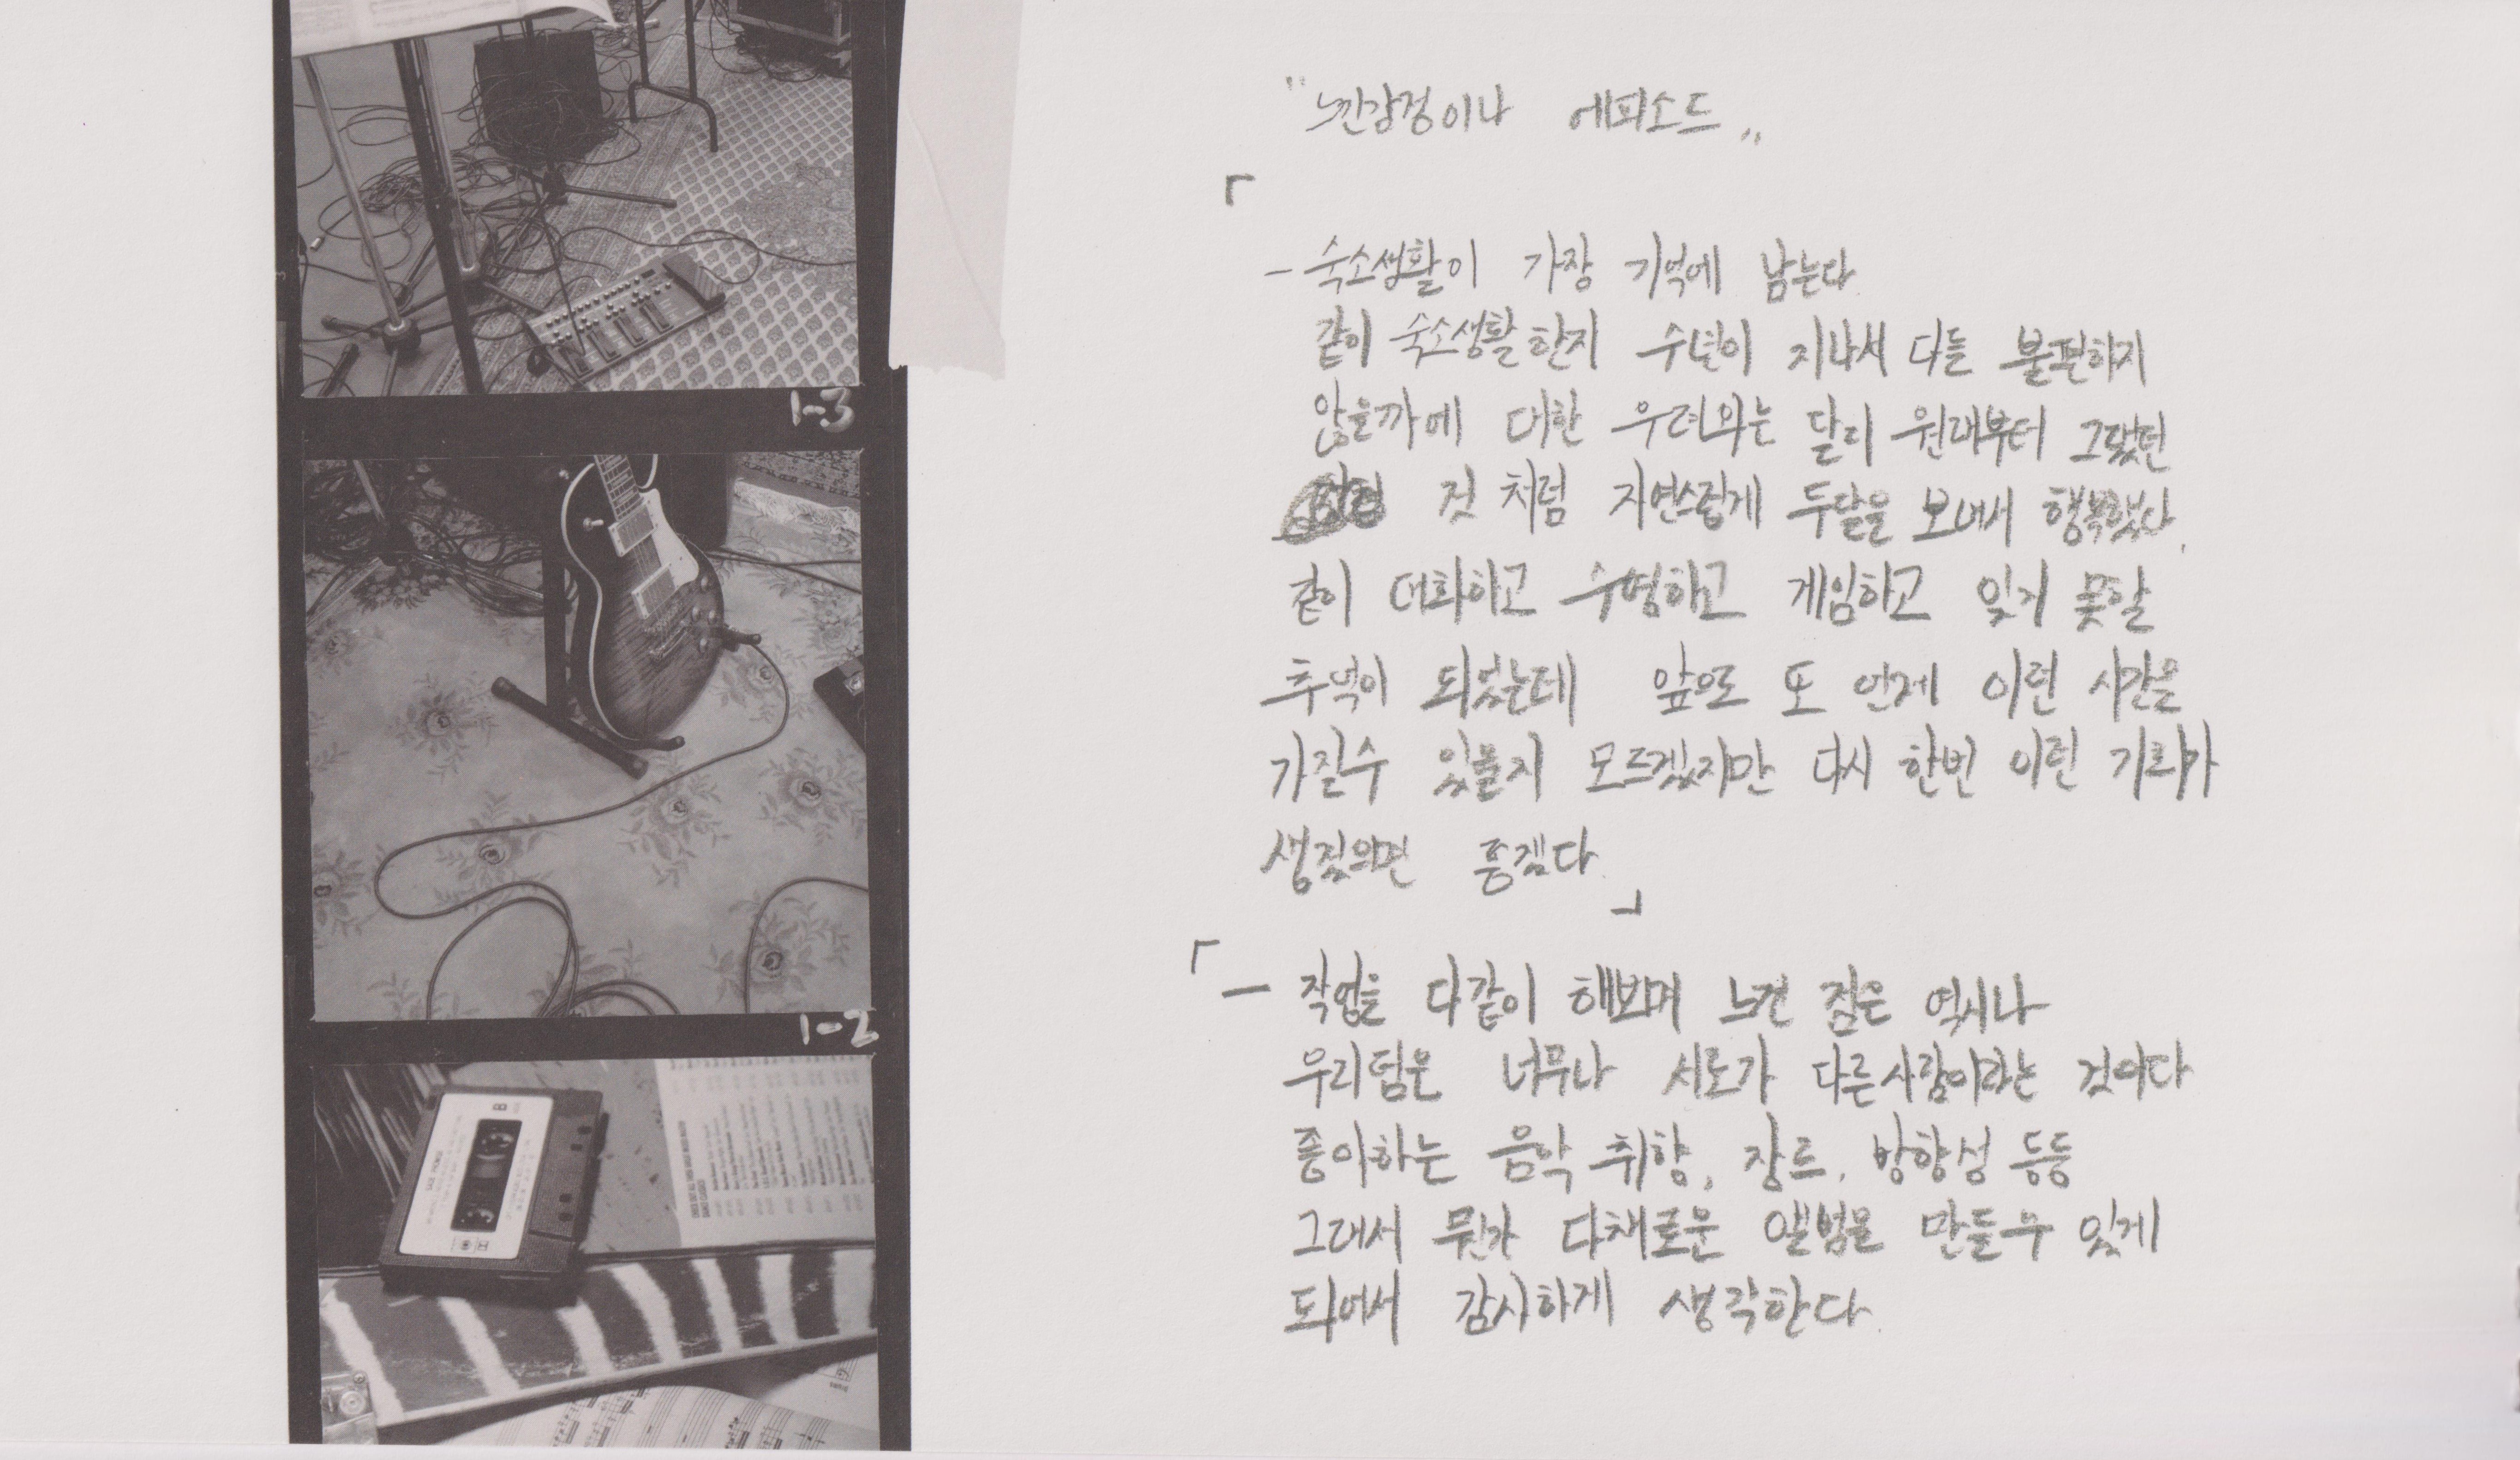 1-3
1-2
B
"느낀감정이나 에피소드"
「
- 숙소생활이 가장 기억에 남는다
같이 숙소생활한지 수년이 지나서 다들 불편하지
않을까에 대한 우려와는 달리 원래부터 그랬던
것 처럼 자연스럽게 두달을 보내서 행복했다.
같이 대화하고 수영하고 게임하고 잊지 못할
추억이 되었는데 앞으로 또 언제 이런 시간을
가질수 있을지 모르겠지만 다시 한번 이런 기회가
생겼으면 좋겠다.
」
「
- 작업을 다같이 해보며 느낀 점은 역시나
우리팀은 너무나 서로가 다른사람이라는 것이다
좋아하는 음악 취향, 장르, 방향성 등등
그래서 뭔가 다채로운 앨범을 만들수 있게
되어서 감사하게 생각한다.